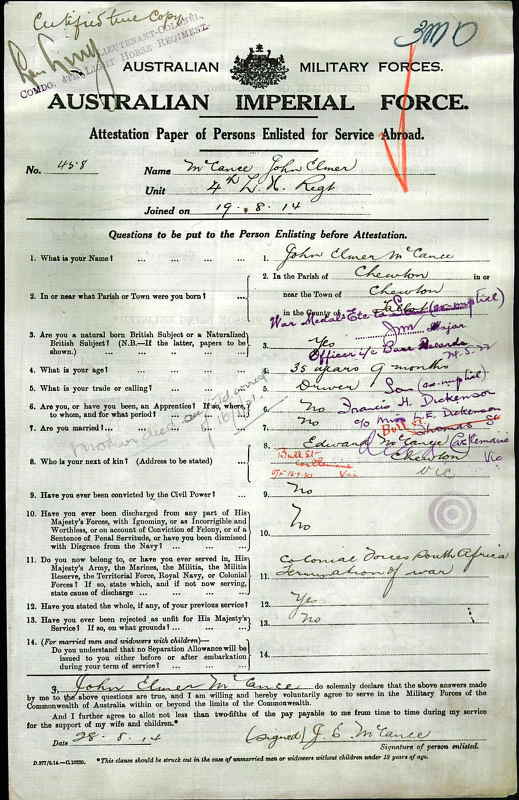 Certified true Copy
LIEUTENANT-COLONEL,
COMDG. 4TH LIGHT HORSE REGIMENT.
3MD
AUSTRALIAN MILITARY FORCES.
AUSTRALIAN IMPERIAL FORCE.
Attestation Paper of Persons Enlisted for Service Abroad.
No. 458 Name McCance John Elmer
Unit 4th L. H. Regt
Joined on 19. 8. 14
Questions to be put to the Person Enlisting before Attestation.
1. What is your Name? ... ... ... ... 1. John Elmer McCance
2. In or near what Parish or Town were you born? ... 2. In the Parish of Chewton in or
near the Town of Chewton
in the County of Talbot
War Medal Etc to S (ex-nuptial)
3. Are you a natural born British Subject or a Naturalized
British Subject? (N.B.—If the latter, papers to be
shown.) ... ... ... ... ... 3. Yes
Major
Officer i/c Base Records
4. What is your age? ... ... ... ... 4. 35 years 9 months
5. What is your trade or calling? ... ... ... 5. Driver
Son (ex-nuptial)
6. Are you, or have you been, an Apprentice? If so, where,
to whom, and for what period? ... ... ... 6. No
Francis H. Dickenson
7. Are you married? ... ... ... ... 7. No
c/o Miss L. E. Dickenson
Thomas St
8. Who is your next of kin? (Address to be stated) ... 8. Edward McCance
Castlemaine
Chewton Vic
Vic
Bull St
Castlemaine
Vic
9. Have you ever been convicted by the Civil Power? ... 9. No
10. Have you ever been discharged from any part of His
Majesty's Forces, with Ignominy, or as Incorrigible and
Worthless, or on account of Conviction of Felony, or of a
Sentence of Penal Servitude, or have you been dismissed
with Disgrace from the Navy? ... ... ... 10. No
11. Do you now belong to, or have you ever served in, His
Majesty's Army, the Marines, the Militia, the Militia
Reserve, the Territorial Force, Royal Navy, or Colonial
Forces? If so, state which, and if not now serving,
state cause of discharge ... ... ... ... 11. Colonial Forces South Africa
Termination of war
12. Have you stated the whole, if any, of your previous service? 12. Yes
13. Have you ever been rejected as unfit for His Majesty's
Service? If so, on what grounds? ... ... ... 13. No
14. (For married men and widowers with children)—
Do you understand that no Separation Allowance will be
issued to you either before or after embarkation
during your term of service? ... ... ... 14.
John Elmer McCance do solemnly declare that the above answers made
by me to the above questions are true, and I am willing and hereby voluntarily agree to serve in the Military Forces of the
Commonwealth of Australia within or beyond the limits of the Commonwealth.
And I further agree to allot not less than two-fifths of the pay payable to me from time to time during my service
for the support of my wife and children.*
Date 28. 8. 14 (signed) J. E McCance
Signature of person enlisted.
*This clause should be struck out in the case of unmarried men or widowers without children under 18 years of age.